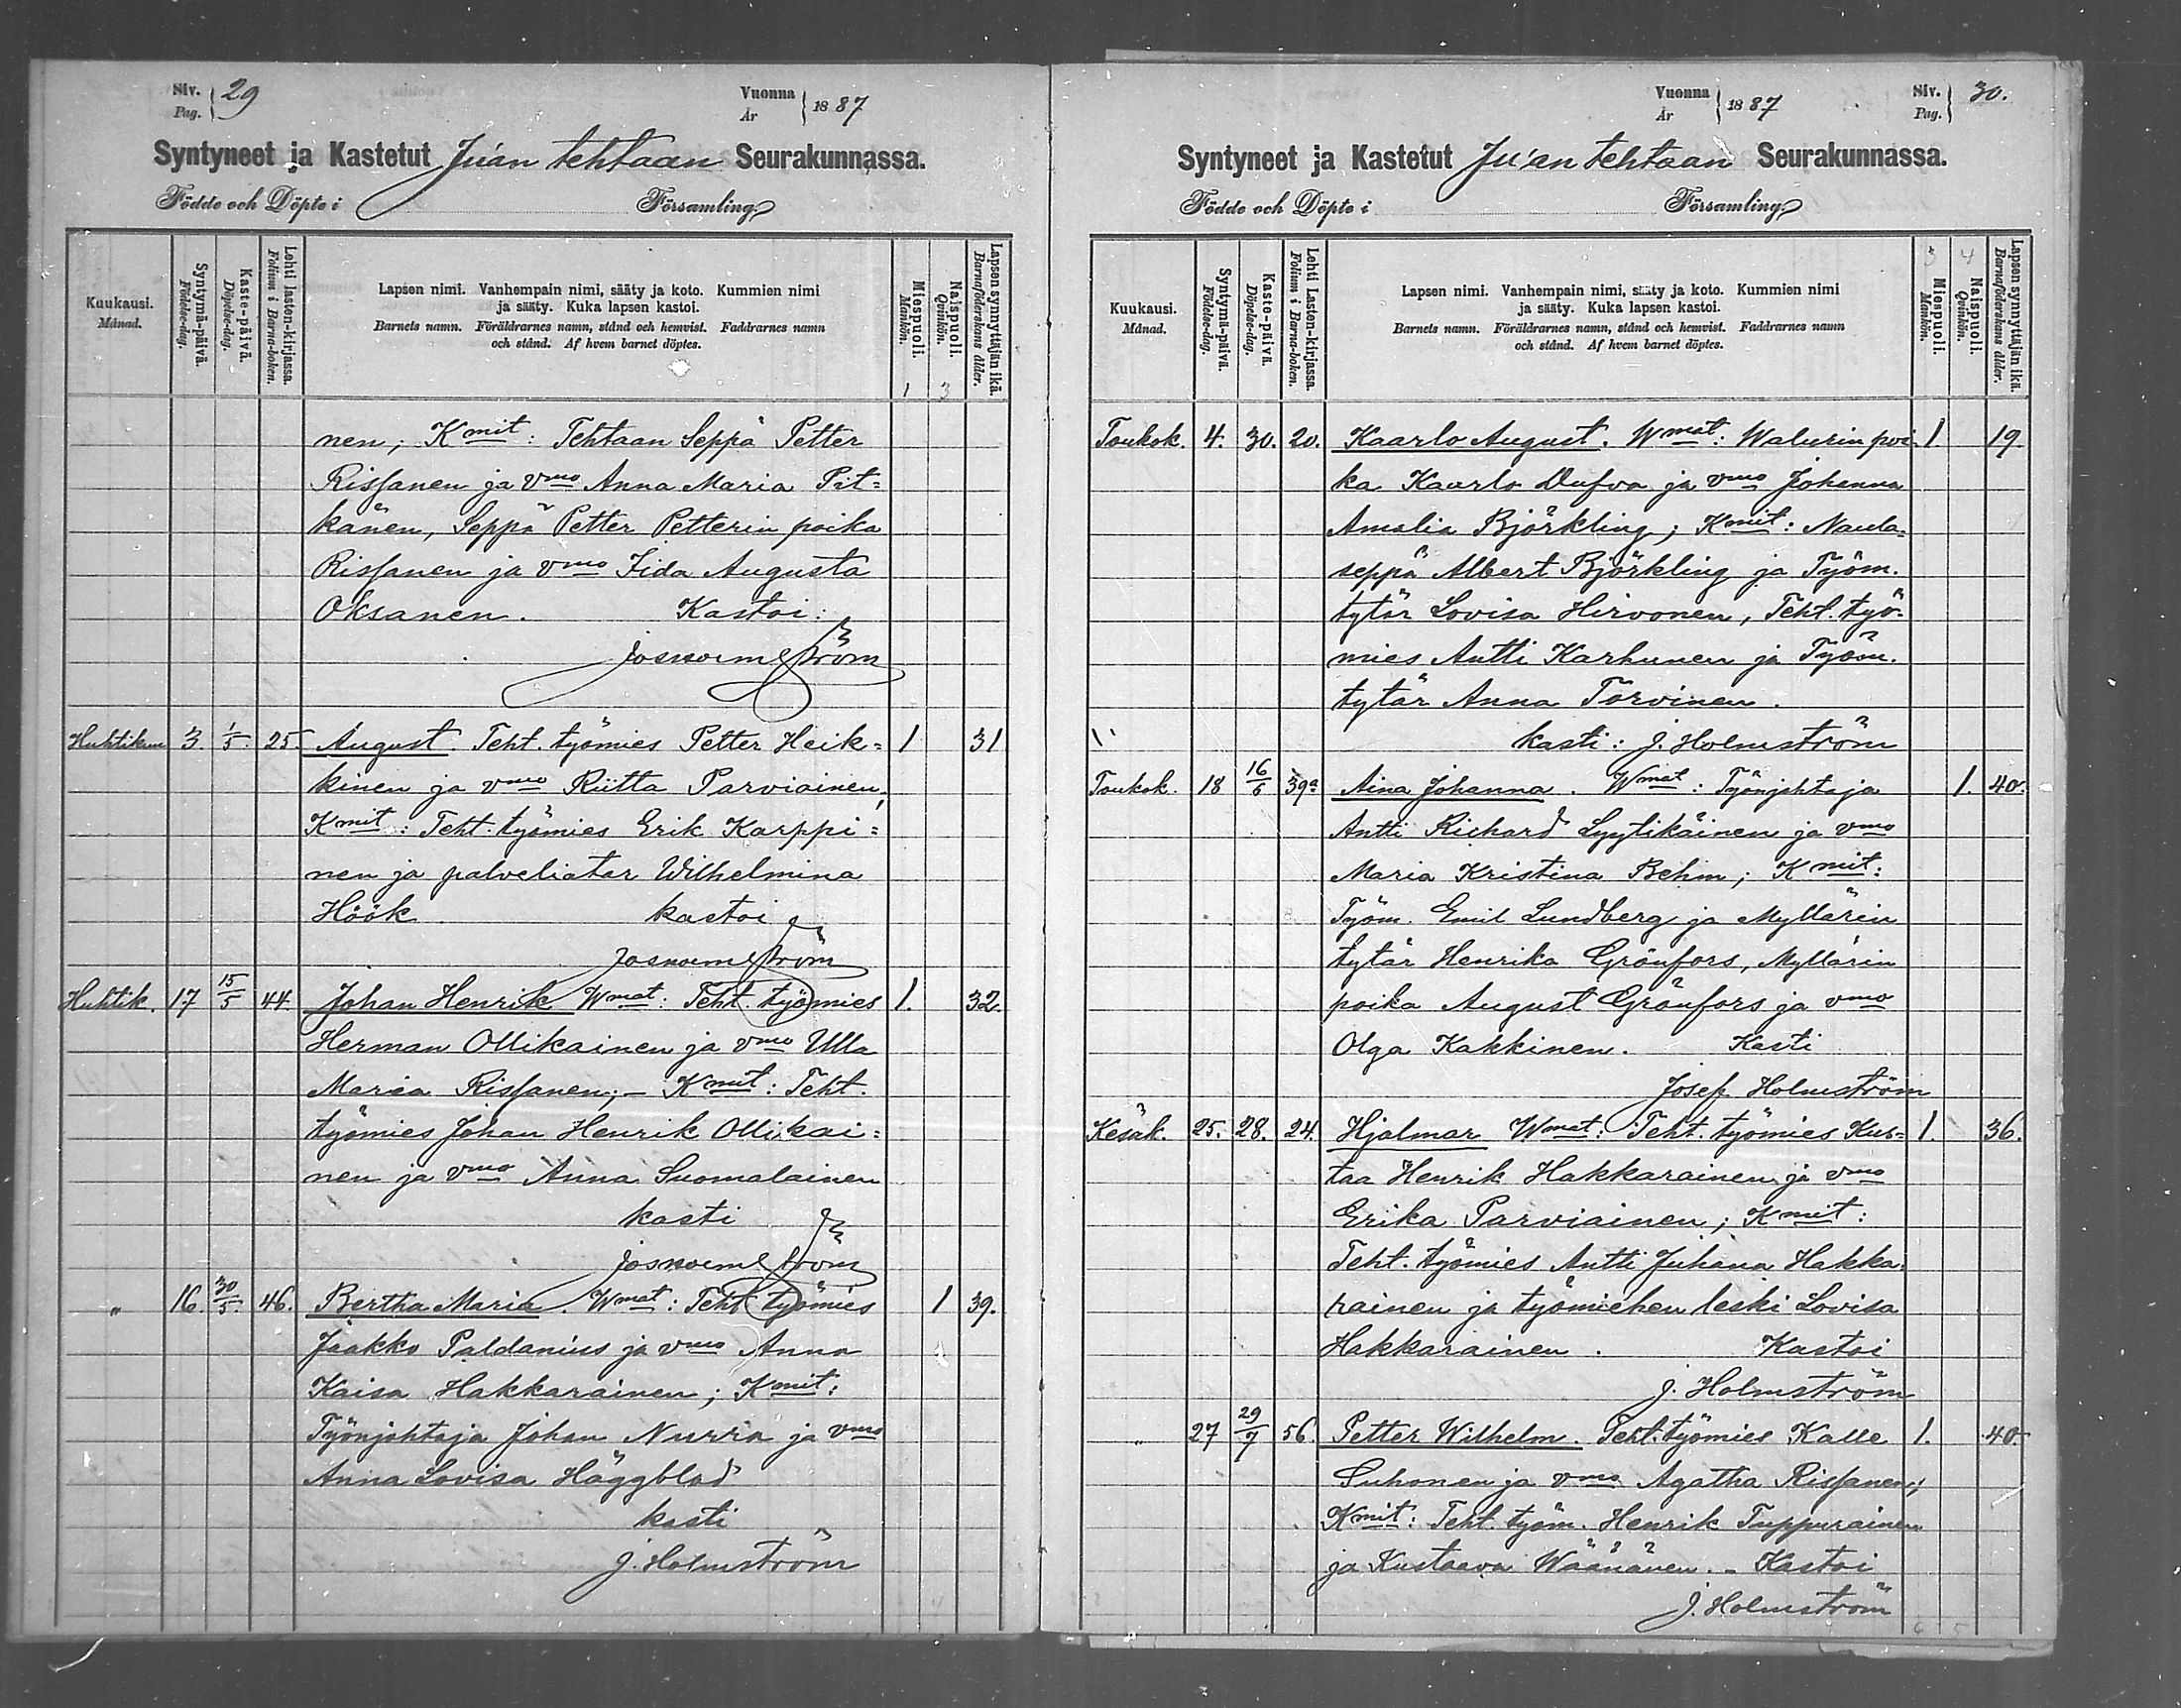 Siv. Pag. } 29
Vuonna År } 1887
Syntyneet ja Kastetut Juan tehtaan Seurakunnassa.
Födde och Döpte i Församling
Kuukausi. Månad.
Syntymä-päivä. Födelse-dag.
Kaste-päivä. Döpelse-dag.
Lehti lasten-kirjassa. Folium i Barna-boken.
Lapsen nimi. Vanhempain nimi, sääty ja koto. Kummien nimi
ja sääty. Kuka lapsen kastoi.
Barnets namn. Föräldrarnes namn, stånd och hemvist. Faddrarnes namn
och stånd. Af hvem barnet döptes.
Miespuoli. Mankön. 1
Naispuoli. Qvinkön. 3
Lapsen synnyttäjän ikä. Barnaföderskans ålder.
nen; Kmit: Tehtaan Seppä Petter
Rissanen ja vmo Anna Maria Pit=
känen, Seppä Petter Petterin poika
Rissanen ja vmo Iida Augusta
Oksanen. Kastoi:
Jos Holmström
Huhtikuu 3. 1/5. 25. August. Teht. työmies Petter Heik= 1 31
kinen ja vmo Riitta Parviainen,
Kmit: Teht. työmies Erik Karppi=
nen ja palveliatar Wilhelmina
Höök. kastoi
Jos Holmström
Huhtik. 17 15/5 44. Johan Henrik Wmat: Teht. työmies 1. 32.
Herman Ollikainen ja vmo Ulla
Maria Rissanen; – Kmit: Teht.
työmies Johan Henrik Ollikai=
nen ja vmo Anna Suomalainen
kasti
Jos Holmström
" 16. 30/5. 46. Bertha Maria. Wmat: Teht työmies 1 39.
Jaakko Paldanius ja vmo Anna
Kaisa Hakkarainen; Kmit:
Työnjohtaja Johan Nurra ja vmo
Anna Lovisa Häggblad
kasti
J. Holmström
Vuonna År } 1887
Siv. Pag. } 30.
Syntyneet ja Kastetut Ju'an tehtaan Seurakunnassa.
Födde och Döpte i Församling
Kuukausi. Månad.
Syntymä-päivä. Födelse-dag.
Kaste-päivä. Döpelse-dag.
Lehti Lasten-kirjassa. Folium i Barna-boken.
Lapsen nimi. Vanhempain nimi, sääty ja koto. Kummien nimi
ja sääty. Kuka lapsen kastoi.
Barnets namn. Föräldrarnes namn, stånd och hemvist. Faddrarnes namn
och stånd. Af hvem barnet döptes.
3 Miespuoli. Mankön.
4 Naispuoli. Qvinkön.
Lapsen synnyttäjän ikä. Barnaföderskans ålder.
Toukok. 4. 30. 20. Kaarlo August. Wmat: Walurin poi- 1. 19.
ka Kaarlo Dufva ja vmo Johanna
Amalia Björkling; Kmit: Naula-
seppä Albert Björkling ja Työm.
tytär Lovisa Hirvonen, Teht. työ-
mies Antti Karhunen ja Työm.
tytär Anna Torvinen.
" kasti: J. Holmström
Toukok. 18 16/6 39a Aina Johanna. Wmat: Työnjohtaja 1. 40.
Antti Richard Lyytikäinen ja vmo
Maria Kristina Behm; Kmit:
Työm. Emil Lundberg ja Myllärin
tytär Henrika Grönfors, Myllärin
poika August Grönfors ja vmo
Olga Kakkinen. Kasti
Josef Holmström
Kesäk. 25. 28. 24. Hjalmar Wmat: Teht. työmies Kus= 1. 36.
taa Henrik Hakkarainen ja vmo
Erika Parviainen; Kmit:
Teht. työmies Antti Juhana Hakka-
rainen ja työmiehen leski Lovisa
Hakkarainen. Kastoi
J. Holmström
" 27 29/7 56. Petter Wilhelm. Teht. työmies Kalle 1. 40.
Suhonen ja vmo Agatha Rissanen;
Kmit: Teht. työm. Henrik Tuppurainen
ja Kustaava Wäänänen. – Kastoi
J. Holmström
6 5